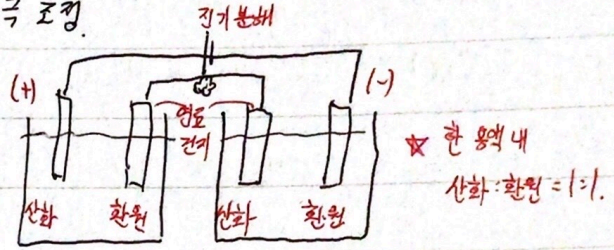 극 조정.
전기분해
(+)
(-)
연료
전지
산화 환원 산화 환원
☆ 한 용액 내
산화:환원 = 1:1.